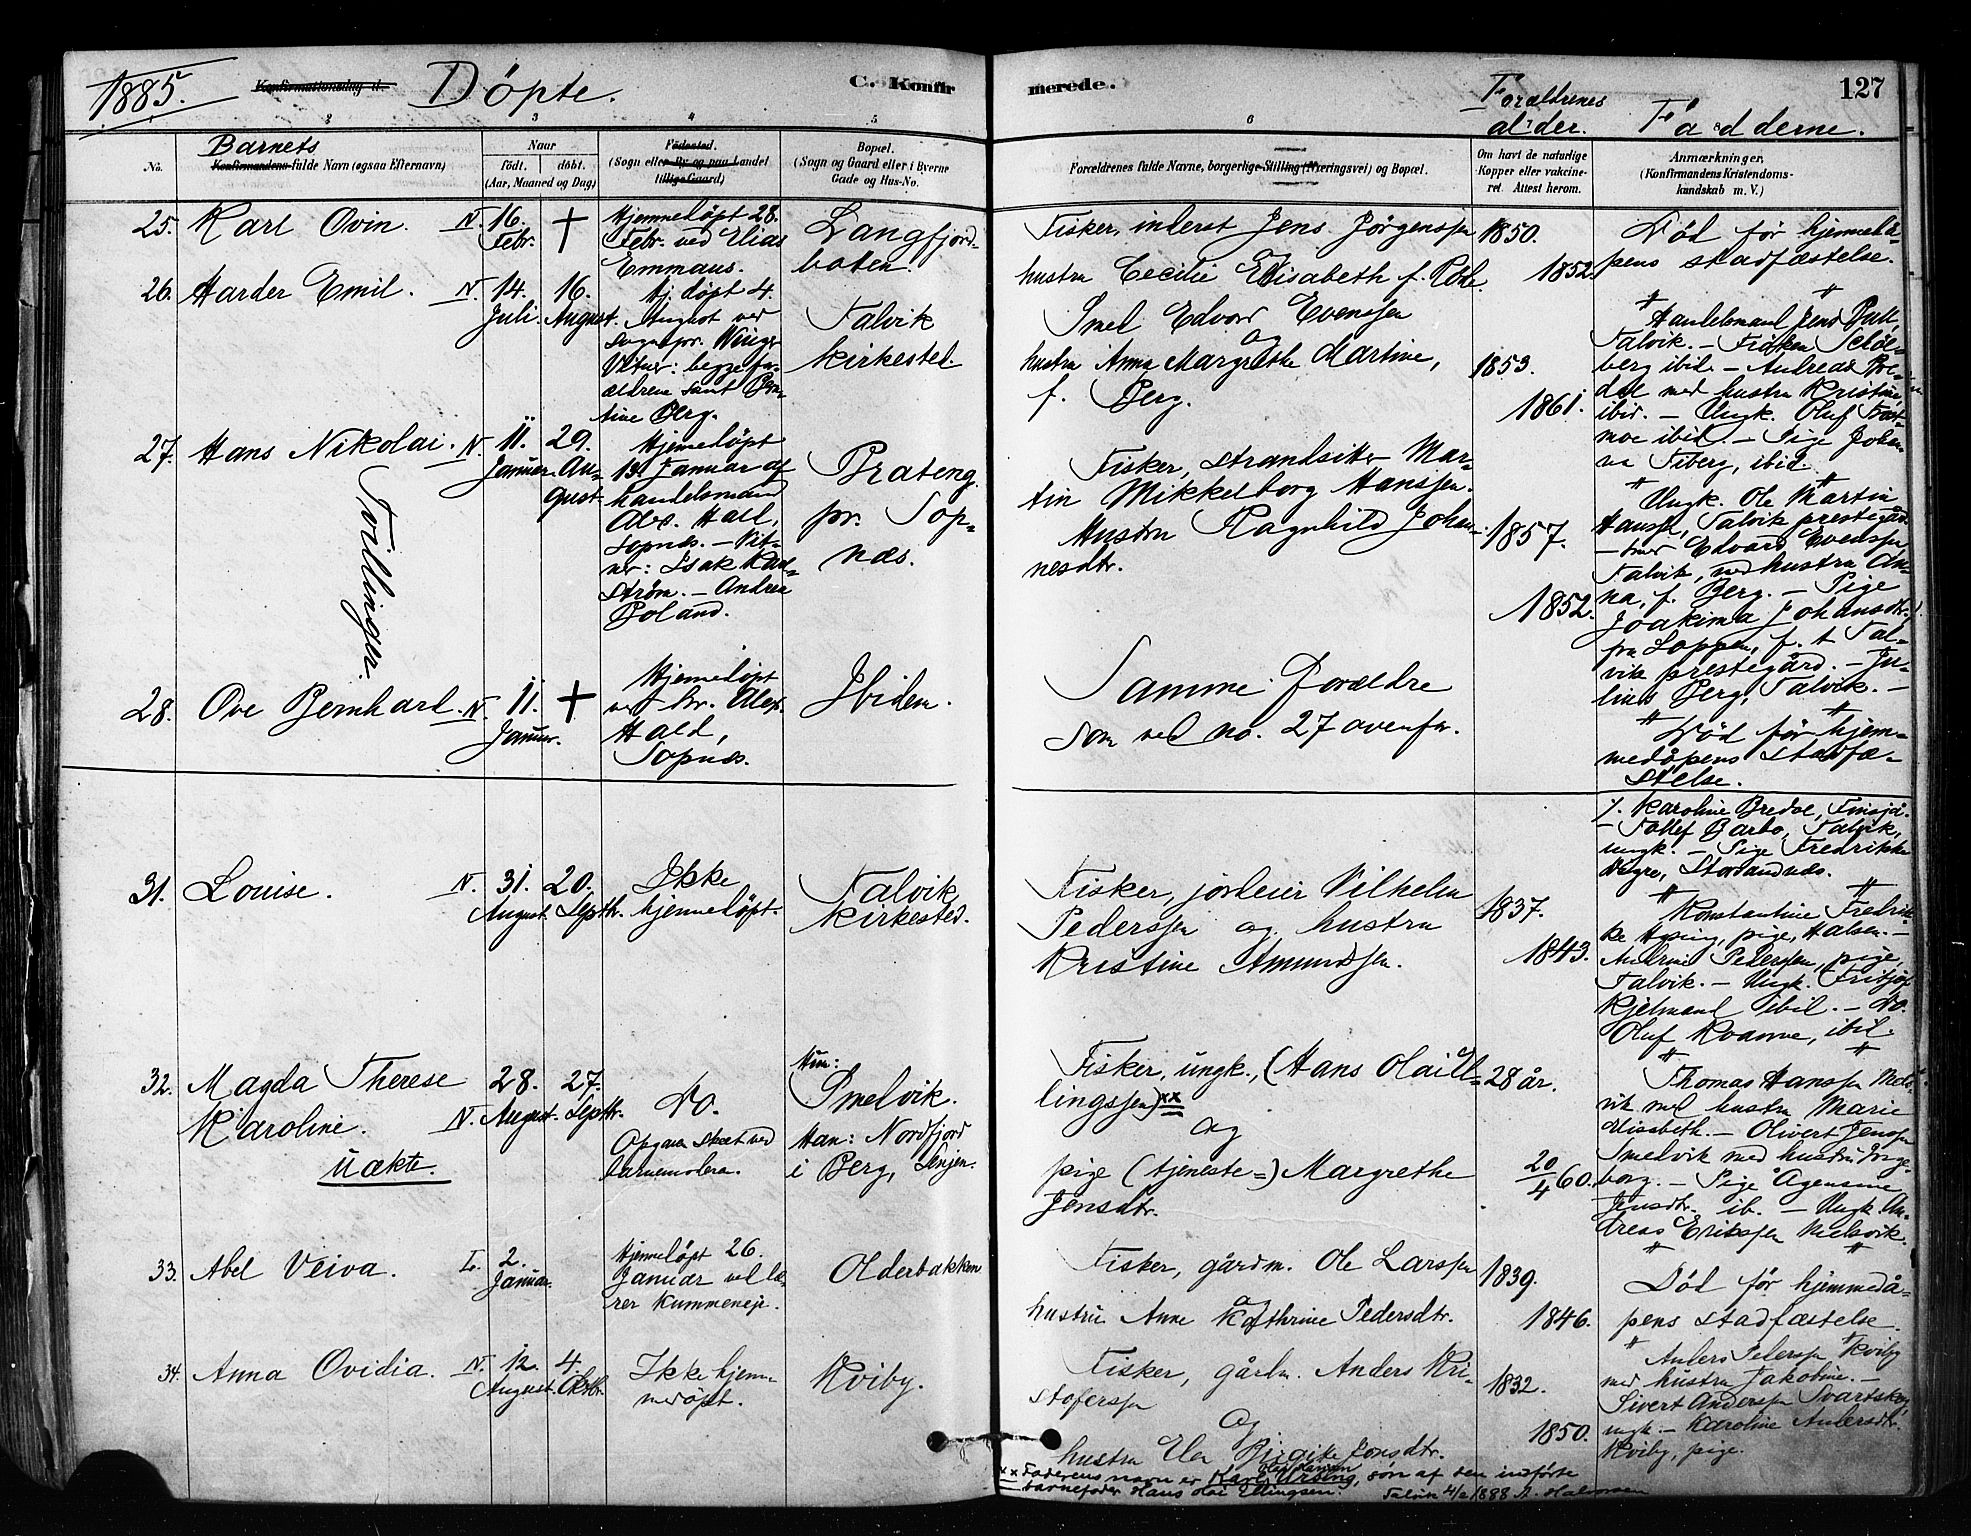 1885. Konfirmationsdag d. Döpte. C. Konfir
merede. Forældrenes alder. Fadderne. 127
2 3 4 5 6 7 8
No. Barnets Konfirmandens fulde Navn (ogsaa Efternavn)
Naar födt. döbt. (Aar, Maaned og Dag)
Födested. (Sogn eller By og paa Landet tillige Gaard)
Bopæl. (Sogn og Gaard eller i Byerne Gade og Hus-No.
Forældrenes fulde Navne, borgerlige Stilling (Næringsvei) og Bopæl.
Om havt de naturlige Kopper eller vaccineret. Attest herom.
Anmærkninger, (Konfirmandens Kristendomskundskab m. V.)
25. Karl Ovin. N. 16. Febr. +
Hjemmedöpt 28.
Febr. ved Elias
Emmaus.
Langfjord-
boten.
Fisker, inderst Jens Jörgenssen
og
hustru Cecilie Elisabeth f.
1850.
1852.
Död för hjemmedå-
pens stadfæstelse.
26. Harder Emil. N. 14. Juli. 16. August.
Hj. döpt 4.
August ved
sognepr. Winge
Vitner: begge fo-
rældrene samt
tine Berg.
Talvik
kirkested.
Smed Edvard Evenssen
og
hustru Anna Margrethe Martine,
f. Berg.
1853.
1861.
Handelsmand Jens
Talvik. – Fröken
berg ibid. – Andreas Bre-
dal med hustru Kristine
ibid. – Ungk. Oluf
moe ibid. – Pige Johan-
na Fiberg, ibid.
27. Hans Nikolai. N. 11. Januar. 29. August.
Tvillinger.
Hjemmedöpt
13. Januar af
handelsmand
Alex. Hall,
Sopnæs. – Vit-
ner: Isak
ström. – Andrea
Boland.
Brateng
pr. Sop-
næs.
Fisker, strandsitter Mar-
tin Mikkelborg Hanssen.
Hustru Ragnhild Johan-
nesdtr.
1857.
1852.
Ungk. Ole Martin
Hanssen, Talvik prestegård
– smed Edvard Evenssen
Talvik, med hustru An-
na, f. Berg. – Pige
Joakima Johansdtr.
fra Loppen, f. t. Tal-
vik prestegård. – Ju-
lius Berg, Talvik. –
28. Ove Bernhard. N. 11. Januar. +
Hjemmedöpt
ved hr. Alex.
Hald,
Sopnæs.
Ibidem.
Samme Forældre
som ved no. 27 ovenfor.
Död för hjem-
medåpens stadfæ-
stelse.
Karoline Bredal,
– Tollef Barbo, Talvik,
ungk. – Pige Fredrikke
31. Louise. N. 31. August. 20. Septbr.
Ikke
hjemmedöpt.
Talvik
kirkested.
Fisker, jordeier Vilhelm
Pederssen og hustru
Kristine Amundsen.
1837.
1843.
Konstantine Fredrik-
ke, pige, Halsen. –
Andrine Pederssen, pige,
Talvik. – Ungk. Fritjof
Kjelmand ibid. – Do.
Oluf Kvanne, ibid.
32. Magda Therese
Karoline.
uækte.
N. 28. August. 27. Septbr.
Do.
Opgaven sket ved
barnemoderen.
Hun:
Smelvik.
Han: Nordfjord
i Berg, Senjen.
Fisker, ungk., (Hans Olai El-
lingssen) xx
og
pige (tjeneste-) Margrethe
Jensdtr.
28 år.
20/4 60.
Thomas Hanssen Mels-
vik med hustru Marie
Elisabeth. – Olivert Jenssen
Smelvik med hustru Inge-
borg. – Pige Agensine
Jensdtr. ib. – Ungk. An-
dreas Erikssen Melsvik.
33. Abel Veiva. L. 2. Januar.
Hjemmedöpt 26.
Januar ved læ-
rer Kummeneje.
Olderbakken
Fisker, gårdm. Ole Larssen
og
hustru Anne Kathrine Pedersdtr.
1839.
1846.
Död för hjemmedå-
pens stadfæstelse.
34. Anna Ovidia. N. 12. August. 4. Oktbr.
Ikke hjem-
medöpt.
Kviby.
Fisker, gårdm. Anders Kri-
stoferssen
og
hustru Elen Birgitte Jonsdtr.
1832.
1850.
Anders Pederssen Kviby
med hustru Jakobine. –
Sivert Anderssen Svartskog,
ungk. – Karoline Andersdtr.
Kviby, pige.
xx Faderens navn er Karl Ursing, sön af den indförte
barnefader Hans Olai Ellingsen. Talvik 4/2 1888 A. Halvorsen